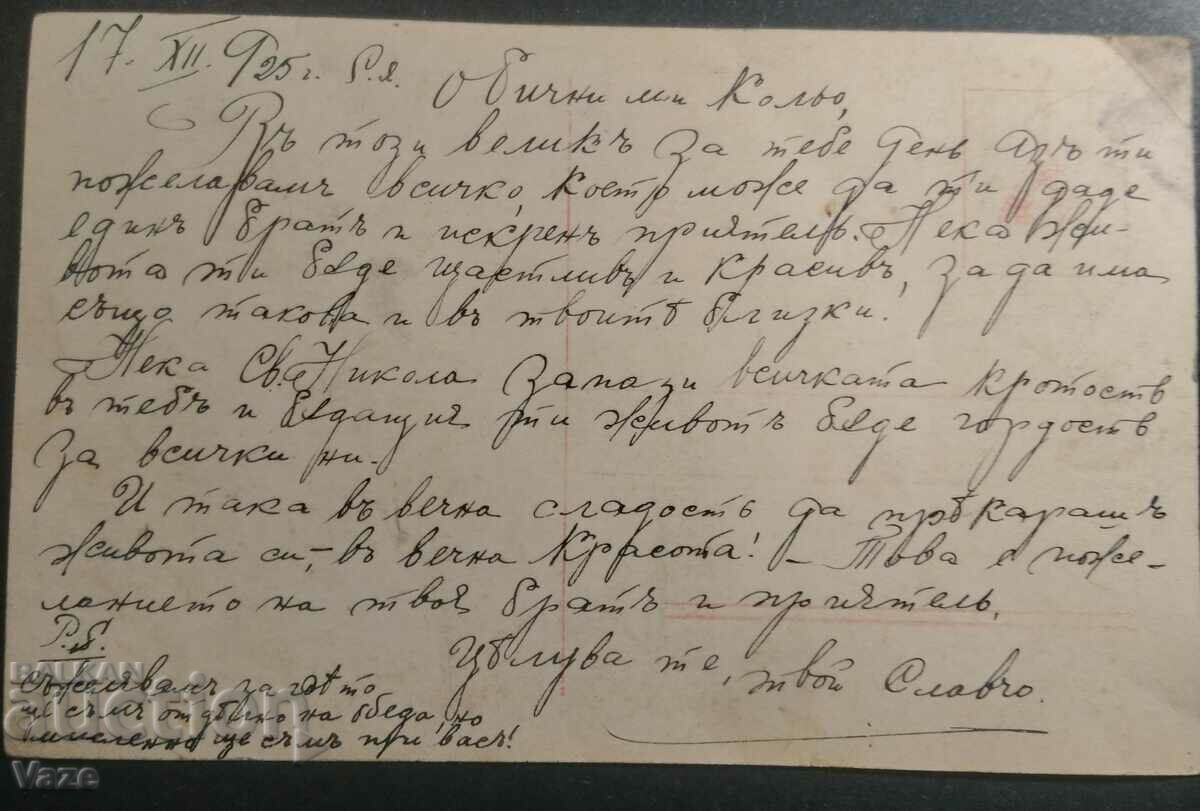 17. XII. 925 г. Б.я.
Обични ми Кольо,
Въ този великъ за тебе день азъ ти
пожелавамъ всичко, което може да ти даде
единъ братъ и искренъ приятель. Нека жи-
вота ти бѫде щастливъ и красивъ, за да има
също такова и въ твоитѣ близки!
Нека Св. Никола запази всичката кротость
въ тебъ и бѫдащия ти животъ бѫде гордость
за всички ни.
И така въ вечна сладость да прѣкарашъ
живота си, – въ вечна красота! – Това е поже-
ланието на твоя братъ и приятель.
Цѣлува те, твой Славчо.
P.S.
Съжелявамъ за гдѣто
ще съмъ отдѣлно на обеда, но
мисленно ще съмъ при васъ!
BALKAN
auction
Vaze